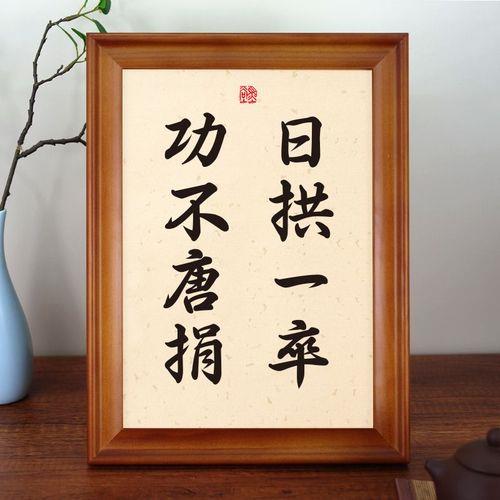 日拱一卒
功不唐捐